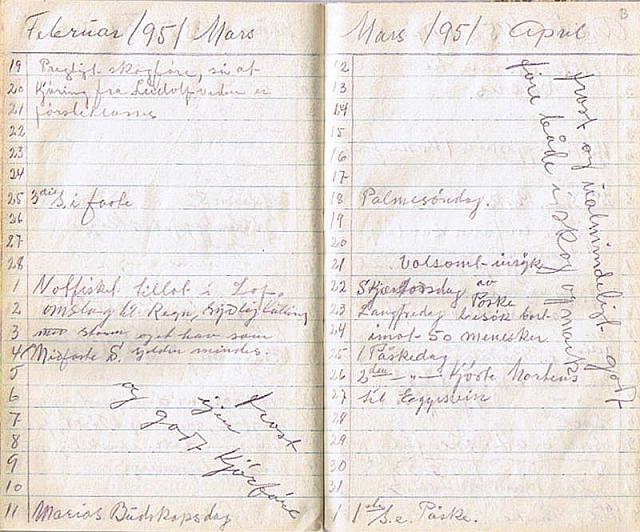 Februar 1951 Mars
19 Pregtigt skogføre, så at
20 Kjøring fra Ludolf veden er
21 første klasses
22
23
24
25 3die S. i faste
26
27
28
1 Notfisket tillot i Lof.
2 omslag til Regn, Sydlig kuling
3 storm eget hav som
4 Midfaste S. mindes.
5
6
7
8
9
10
11 Marias Budskapsdag
frost
igen
og godt Kjøreføre
Mars 1951 April
12
13
14
15
16
17
18 Palmesöndag.
19
20
21 Volsomt insyk
22 Skjærtorsdag av
Påske
23 Langfredag besök bort-
24 imot 50 menesker
25 1 Påskedag
26 2den -"- Kjöste Mortens
27 til Eggesvik
28
29
30
31
1 1ste S. e. Påske.
frost og ualmindeligt godt
føre både i skog og mark